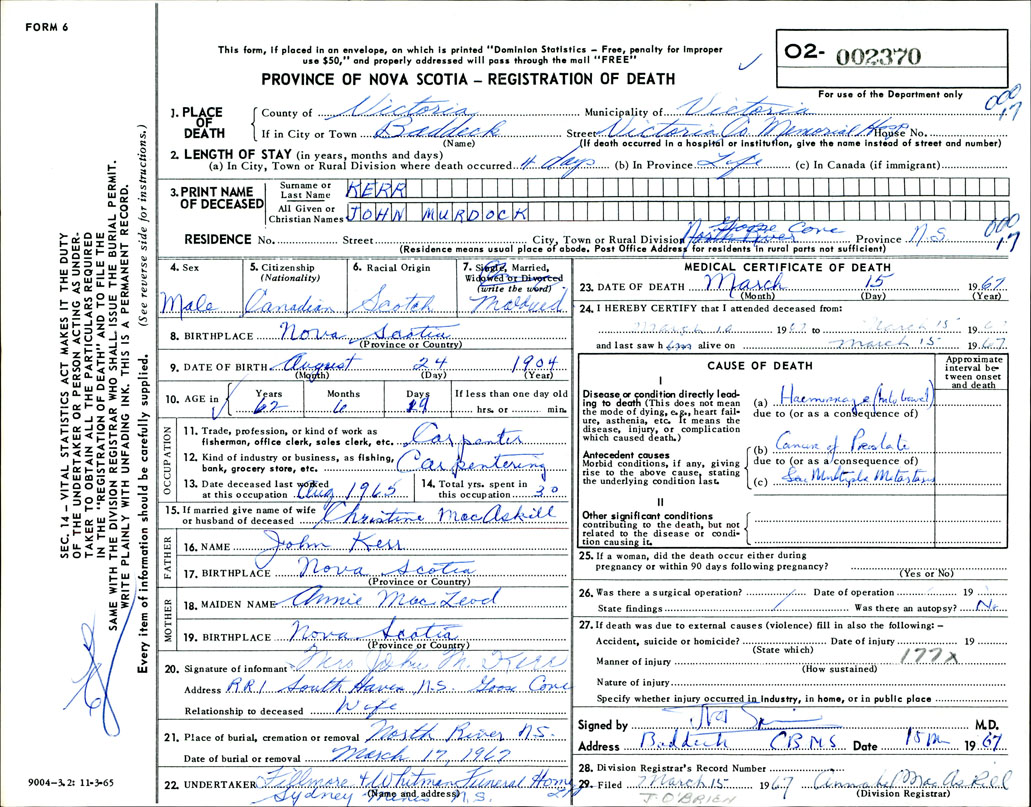 FORM 6
This form, if placed in an envelope, on which is printed "Dominion Statistics – Free, penalty for improper
use $50," and properly addressed will pass through the mail "FREE"
PROVINCE OF NOVA SCOTIA – REGISTRATION OF DEATH
O2- 002370
For use of the Department only
000
17
1. PLACE OF DEATH
County of Victoria Municipality of Victoria
If in City or Town Baddeck Street Victoria Co. Memorial Hosp House No.
(Name) (If death occurred in a hospital or institution, give the name instead of street and number)
2. LENGTH OF STAY (in years, months and days)
(a) In City, Town or Rural Division where death occurred 4 days (b) In Province Life (c) In Canada (if immigrant)
3. PRINT NAME OF DECEASED
Surname or Last Name KERR
All Given or Christian Names JOHN MURDOCK
RESIDENCE No. Street City, Town or Rural Division North River Goose Cove Province N.S.
000
17
(Residence means usual place of abode. Post Office Address for residents in rural parts not sufficient)
4. Sex Male
5. Citizenship (Nationality) Canadian
6. Racial Origin Scotch
7. Single, Married, Widowed or Divorced (write the word) Married
8. BIRTHPLACE Nova Scotia
(Province or Country)
9. DATE OF BIRTH August 24 1904
(Month) (Day) (Year)
10. AGE in Years Months Days If less than one day old
62 6 19 hrs. or min.
OCCUPATION
11. Trade, profession, or kind of work as
fisherman, office clerk, sales clerk, etc. Carpenter
12. Kind of industry or business, as fishing,
bank, grocery store, etc. Carpentering
13. Date deceased last worked
at this occupation Aug 1965
14. Total yrs. spent in
this occupation 30
15. If married give name of wife
or husband of deceased Christine MacAskill
FATHER
16. NAME John Kerr
17. BIRTHPLACE Nova Scotia
(Province or Country)
MOTHER
18. MAIDEN NAME Annie MacLeod
19. BIRTHPLACE Nova Scotia
(Province or Country)
20. Signature of informant Mrs John M. Kerr
Address RR1 South Haven, N.S. Goose Cove
Relationship to deceased Wife
21. Place of burial, cremation or removal North River N.S.
Date of burial or removal March 17, 1967
22. UNDERTAKER Fillmore & Whitman Funeral Home
(Name and address) Sydney Mines N.S.
MEDICAL CERTIFICATE OF DEATH
23. DATE OF DEATH March 15 1967
(Month) (Day) (Year)
24. I HEREBY CERTIFY that I attended deceased from:
March 10 1967 to March 15 1967
and last saw him alive on March 15 1967
CAUSE OF DEATH
Approximate interval between onset and death
I
Disease or condition directly leading to death (This does not mean
the mode of dying, e.g., heart failure, asthenia, etc. It means the
disease, injury, or complication
which caused death.)
(a) Haemorrhage
due to (or as a consequence of)
Antecedent causes
Morbid conditions, if any, giving
rise to the above cause, stating
the underlying condition last.
(b) Cancer of Prostate
due to (or as a consequence of)
(c) Multiple Metastases
II
Other significant conditions
contributing to the death, but not
related to the disease or condition causing it.
25. If a woman, did the death occur either during
pregnancy or within 90 days following pregnancy?
(Yes or No)
26. Was there a surgical operation? Date of operation 19
State findings Was there an autopsy? No
27. If death was due to external causes (violence) fill in also the following: –
Accident, suicide or homicide? Date of injury 19
(State which)
Manner of injury 177X
(How sustained)
Nature of injury
Specify whether injury occurred in industry, in home, or in public place
Signed by M.D.
Address Baddeck C.B. N.S. Date 15 1967
28. Division Registrar's Record Number
29. Filed March 15 1967 Annabel MacAskill
(Division Registrar)
J. O'BRIEN
SEC. 14 – VITAL STATISTICS ACT MAKES IT THE DUTY
OF THE UNDERTAKER OR PERSON ACTING AS UNDERTAKER TO OBTAIN ALL THE PARTICULARS REQUIRED
IN THE "REGISTRATION OF DEATH" AND TO FILE THE
SAME WITH THE DIVISION REGISTRAR WHO SHALL ISSUE THE BURIAL PERMIT.
WRITE PLAINLY WITH UNFADING INK. THIS IS A PERMANENT RECORD.
Every item of information should be carefully supplied. (See reverse side for instructions.)
9004-3.2: 11-3-65